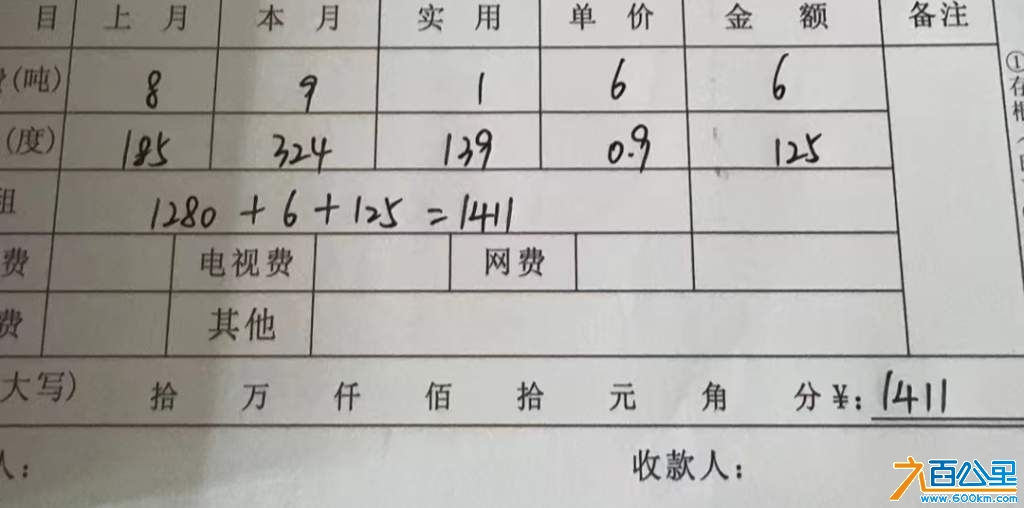 目 上月 本月 实用 单价 金额 备注
(吨) 8 9 1 6 6
(度) 185 324 139 0.9 125
租 1280 + 6 + 125 = 1411
费 电视费 网费
费 其他
大写) 拾 万 仟 佰 拾 元 角 分 ¥: 1411
人: 收款人:
①
存
根
九百公里
www.600km.com